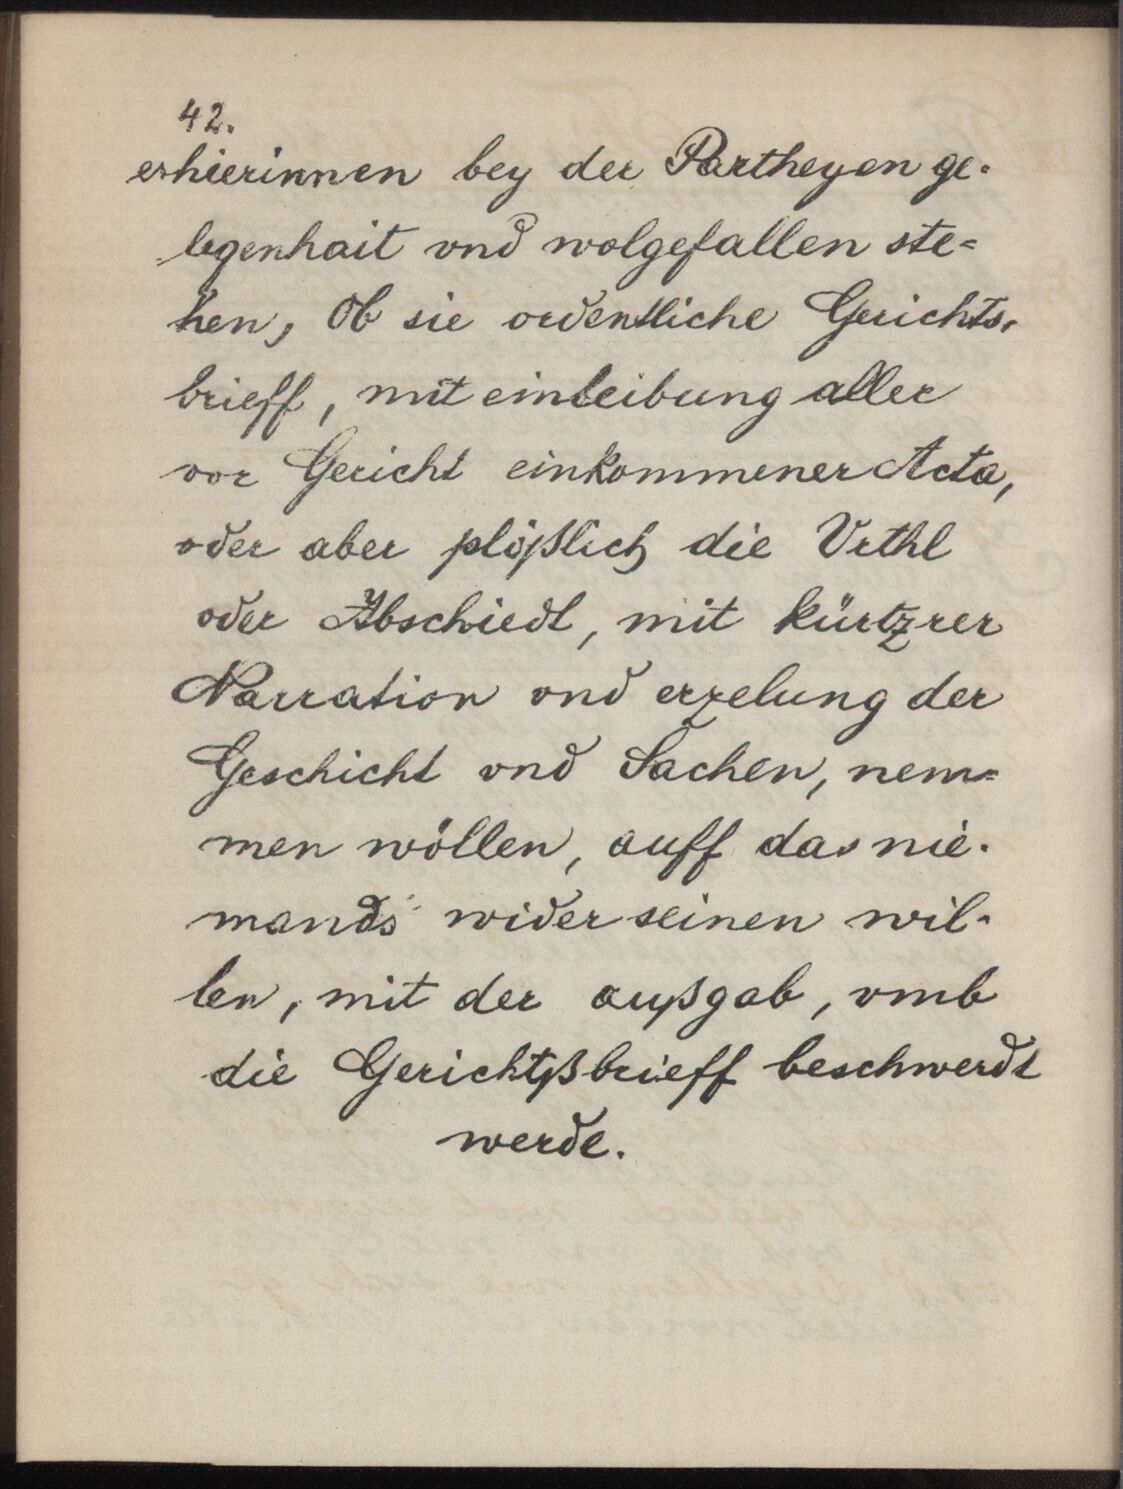 42.
es hierinnen bey der Partheyen ge-
legenhait vnd wolgefallen ste=
hen, Ob sie ordentliche Gerichts-
brieff, mit einleibung aller
vor Gericht einkommener Acta,
oder aber plößlich die Vrthl
oder Abschiedt, mit kürtzrer
Narration vnd erzelung der
Geschicht vnd Sachen, nem=
men wöllen, auff das nie-
mands wider seinen wil-
len, mit der außgab, vmb
die Gerichtßbrieff beschwerdt
werde.